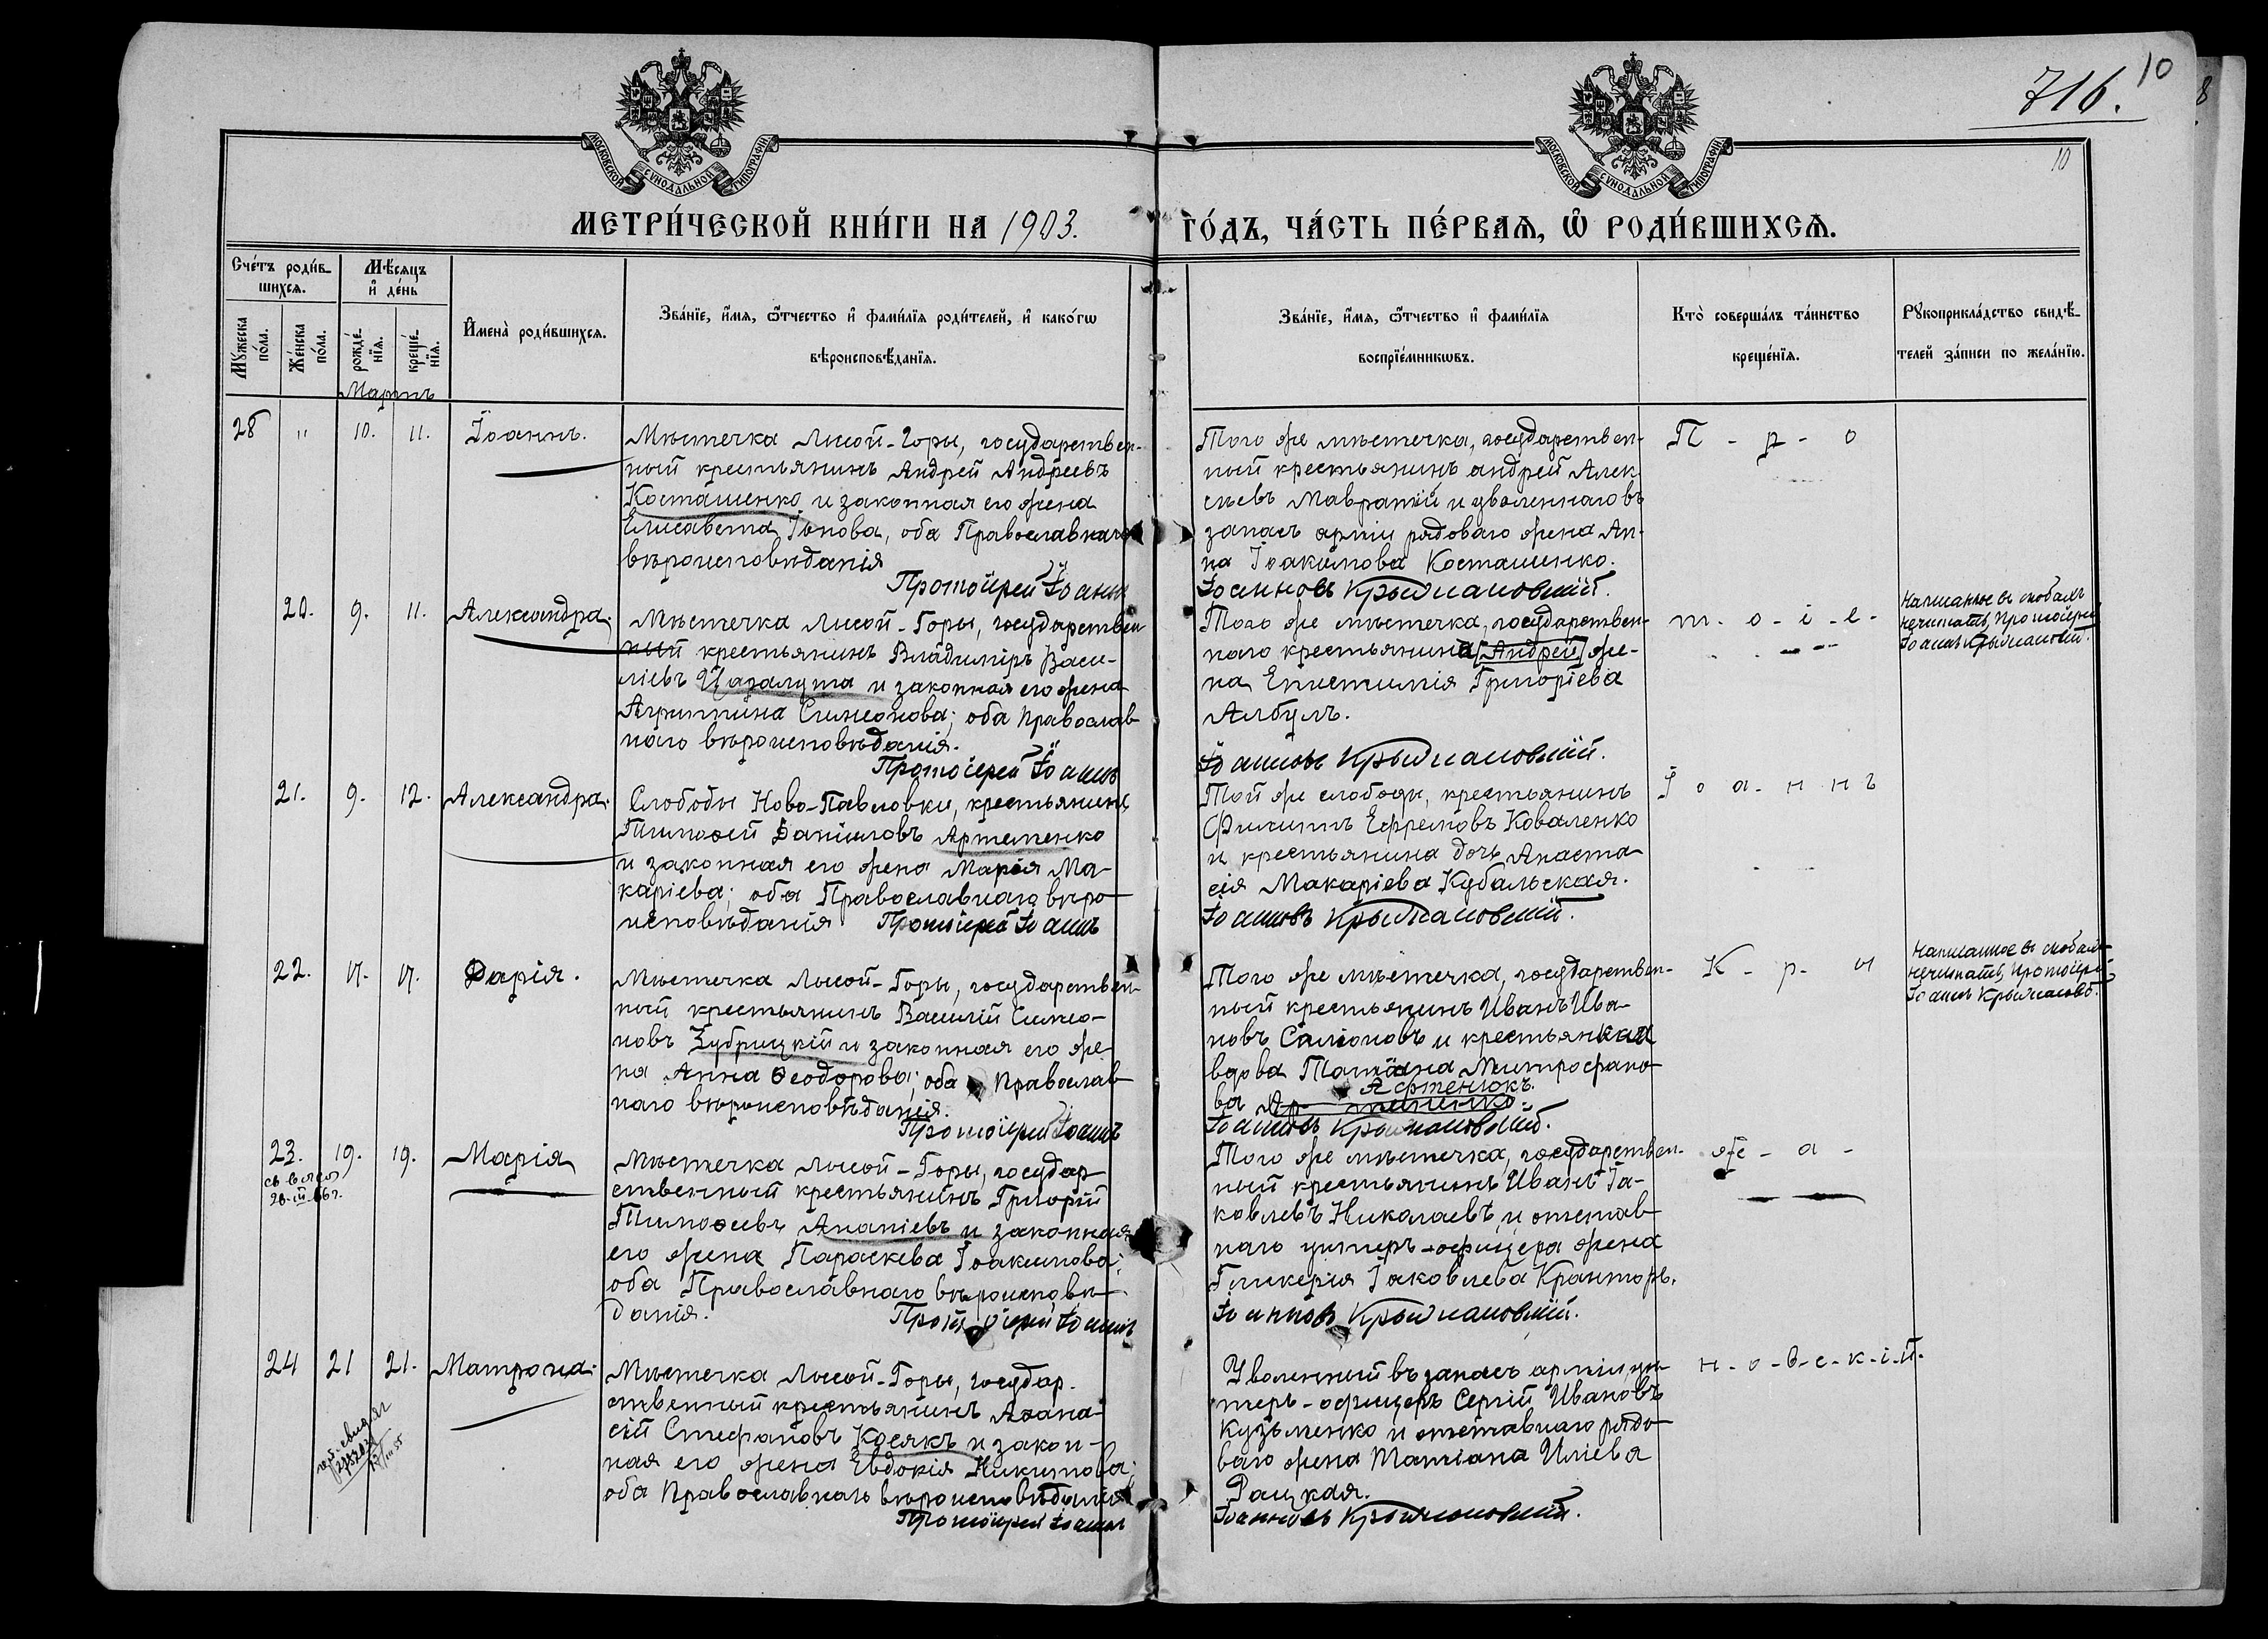 716. 10
10
МОСКОВСКОЙ СѴНОДАЛЬНОЙ ТИПОГРАФІИ
МОСКОВСКОЙ СѴНОДАЛЬНОЙ ТИПОГРАФІИ
МЕТРИ́ЧЕСКОЙ КНИ́ГИ НА 1903. ГО́ДЪ, ЧА́СТЬ ПЕ́РВАѦ, Ѡ҆ РОДИ́ВШИХСѦ.
Сче́тъ роди́в-
шихсѧ.
Мꙋ́жеска по́ла.
Же́нска по́ла.
Мѣ́сѧцъ
и҆ де́нь
рожде́-
нїѧ.
креще́-
нїѧ.
И҆мена̀ роди́вшихсѧ.
Зва́нїе, и҆́мѧ, ѻ҆́тчество и҆ фами́лїѧ роди́телей, и҆ како́гѡ
вѣроисповѣ́данїѧ.
Зва́нїе, и҆́мѧ, ѻ҆́тчество и҆ фами́лїѧ
воспрїе́мникѡвъ.
Кто̀ соверша́лъ та́инство
креще́нїѧ.
Рꙋкоприкла́дство свидѣ́-
телей за́писи по жела́нїю.
Мартъ
28 " 10. 11. Іоаннъ.
Мѣстечка Лысой-Горы, государствен-
ный крестьянинъ Андрей Андреевъ
Косташенко и законная его жена
Елисавета Іонова, оба Православнаго
вѣроисповѣданія
Протоіерей Іоаннъ
Того же мѣстечка, государствен-
ный крестьянинъ Андрей Алек-
сѣевъ Мавратій и уволеннаго въ
запасъ арміи рядоваго жена Ан-
на Іоакимова Косташенко.
Іоанновъ Крыжановскій.
П - р - о
20. 9. 11. Александра.
Мѣстечка Лысой-Горы, государствен-
ный крестьянинъ Владиміръ Васи-
ліевъ Царалута и законная его жена
Агриппина Симеонова; оба Православ-
наго вѣроисповѣданія.
Протоіерей Іоаннъ
Того же мѣстечка, государствен-
наго крестьянина [Андрей] же-
на Епистимія Григоріева
Албулъ.
Іоанновъ Крыжановскій.
т - о - і - е -
Написанное въ скобахъ
нечитать, Протоіерей
Іоаннъ Крыжановскій.
21. 9. 12. Александра.
Слободы Ново-Павловки, крестьянинъ
Тимоѳей Даніиловъ Артеменко
и законная его жена Марія Ма-
каріева; оба Православнаго вѣро-
исповѣданія Протоіерей Іоаннъ
Той же слободы, крестьянинъ
Филиппъ Ефремовъ Коваленко
и крестьянина дочь Анаста-
сія Макаріева Кубальская.
Іоанновъ Крыжановскій.
І о а - н н ъ
22. 17. 17. Дарія.
Мѣстечка Лысой-Горы, государствен-
ный крестьянинъ Василій Симео-
новъ Зубрицкій и законная его же-
на Анна Ѳеодорова; оба Православ-
наго вѣроисповѣданія.
Протоіерей Іоаннъ
Того же мѣстечка, государствен-
ный крестьянинъ Иванъ Ива-
новъ Саліоновъ и крестьянская
вдова Татіана Митрофано-
Афтенюкъ.
ва
Іоанновъ Крыжановскій.
К - р - ы
Написанное въ скобахъ
нечитать, Протоіерей
Іоаннъ Крыжановс.
23. 19. 19. Марія
28-III-66г.
Мѣстечка Лысой-Горы, государ-
ственный крестьянинъ Григорій
Тимоѳеевъ Ананіевъ и законная
его жена Параскева Іоакимова;
оба Православнаго вѣроисповѣ-
данія. Протоіерей Іоаннъ
Того же мѣстечка, государствен-
ный крестьянинъ Иванъ Іа-
ковлевъ Николаевъ, и отстав-
наго унтеръ-офицера жена
Гликерія Іаковлева Кранторъ.
Іоанновъ Крыжановскій.
ж - а -
24 21 21. Матрона.
Мѣстечка Лысой-Горы, государ-
ственный крестьянинъ Аѳана-
сій Стефановъ Косякъ и закон-
ная его жена Евдокія Никитова;
оба Православнаго вѣроисповѣданія
Протоіерей Іоаннъ
Уволенный въ запасъ арміи ун-
теръ-офицеръ Сергій Ивановъ
Кузьменко и отставнаго рядо-
ваго жена Татіана Иліева
Рацкая.
Іоанновъ Крыжановскій.
н - о - в - с - к - і - й.